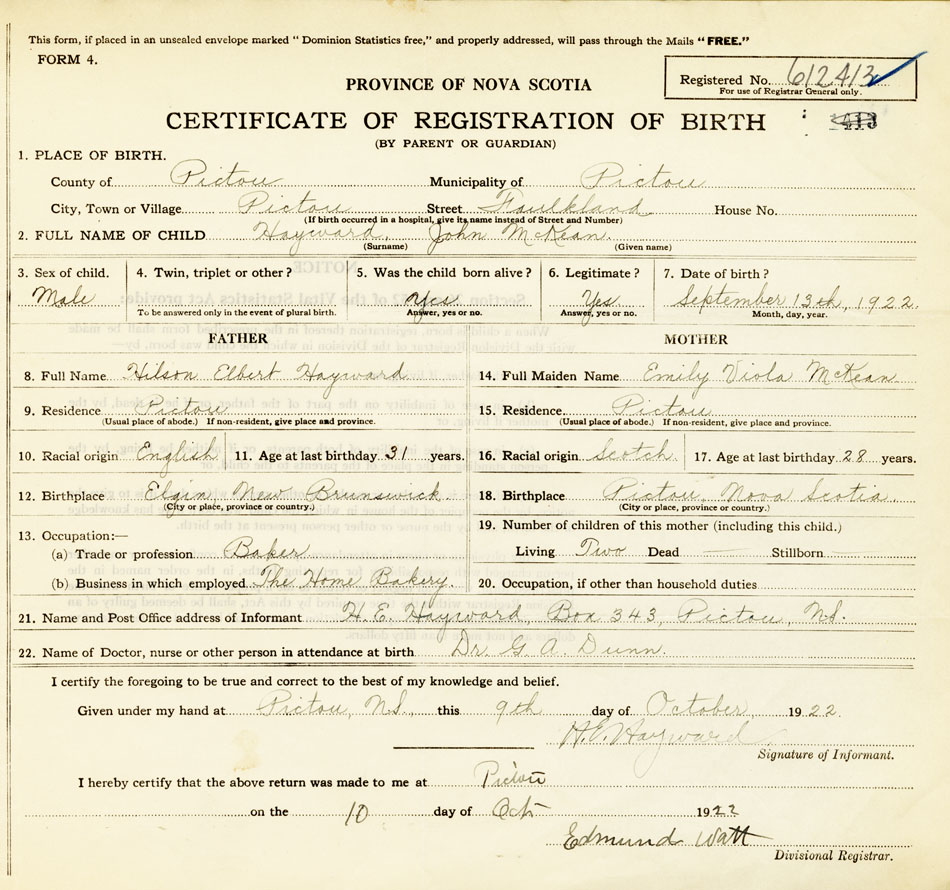 This form, if placed in an unsealed envelope marked "Dominion Statistics free," and properly addressed, will pass through the Mails "FREE."
FORM 4.
Registered No. 612413
For use of Registrar General only.
PROVINCE OF NOVA SCOTIA
CERTIFICATE OF REGISTRATION OF BIRTH
(BY PARENT OR GUARDIAN)
1. PLACE OF BIRTH.
County of Pictou Municipality of Pictou
City, Town or Village Pictou Street Faulkland House No.
(If birth occurred in a hospital, give its name instead of Street and Number)
2. FULL NAME OF CHILD Hayward, John McKean.
(Surname) (Given name)
3. Sex of child. 4. Twin, triplet or other? 5. Was the child born alive? 6. Legitimate? 7. Date of birth?
Male Yes Yes. September 13th, 1922.
To be answered only in the event of plural birth. Answer, yes or no. Answer, yes or no. Month, day, year.
FATHER MOTHER
8. Full Name Hilson Elbert Hayward 14. Full Maiden Name Emily Viola McKean
9. Residence Pictou 15. Residence. Pictou
(Usual place of abode.) If non-resident, give place and province. (Usual place of abode.) If non-resident, give place and province.
10. Racial origin English 11. Age at last birthday 31 years. 16. Racial origin Scotch. 17. Age at last birthday 28 years.
12. Birthplace Elgin New Brunswick 18. Birthplace Pictou, Nova Scotia.
(City or place, province or country.) (City or place, province or country.)
13. Occupation:— 19. Number of children of this mother (including this child.)
(a) Trade or profession Baker Living Two Dead — Stillborn —
(b) Business in which employed. The Home Bakery. 20. Occupation, if other than household duties
21. Name and Post Office address of Informant H. E. Hayward, Box 343, Pictou, N.S.
22. Name of Doctor, nurse or other person in attendance at birth Dr. G. A. Dunn.
I certify the foregoing to be true and correct to the best of my knowledge and belief.
Given under my hand at Pictou, N.S., this 9th day of October, 1922.
H. E. Hayward
Signature of Informant.
I hereby certify that the above return was made to me at Pictou
on the 10 day of Oct 1922
Edmund Watt
Divisional Registrar.